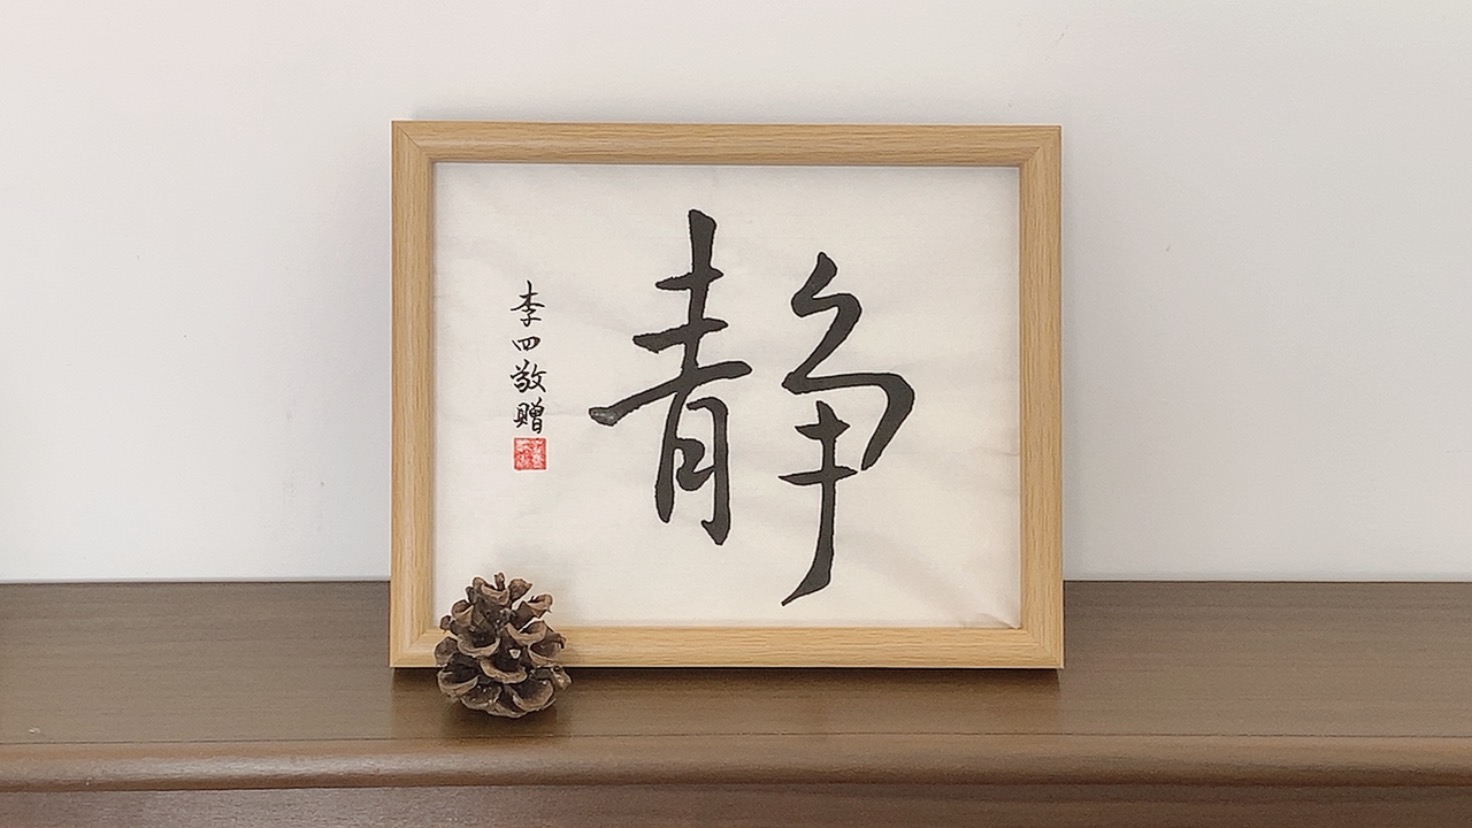 静
李四敬赠